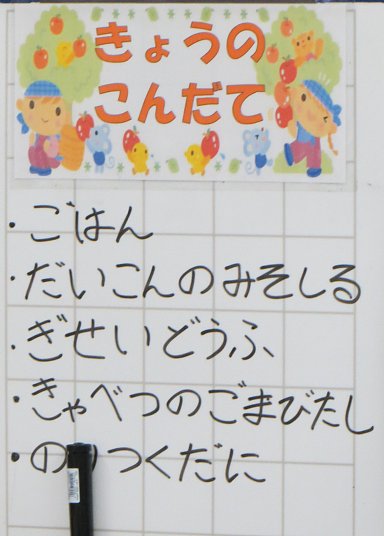 きょうの
こんだて
・ごはん
・だいこんのみそしる
・ぎせいどうふ
・きゃべつのごまびたし
・のりつくだに